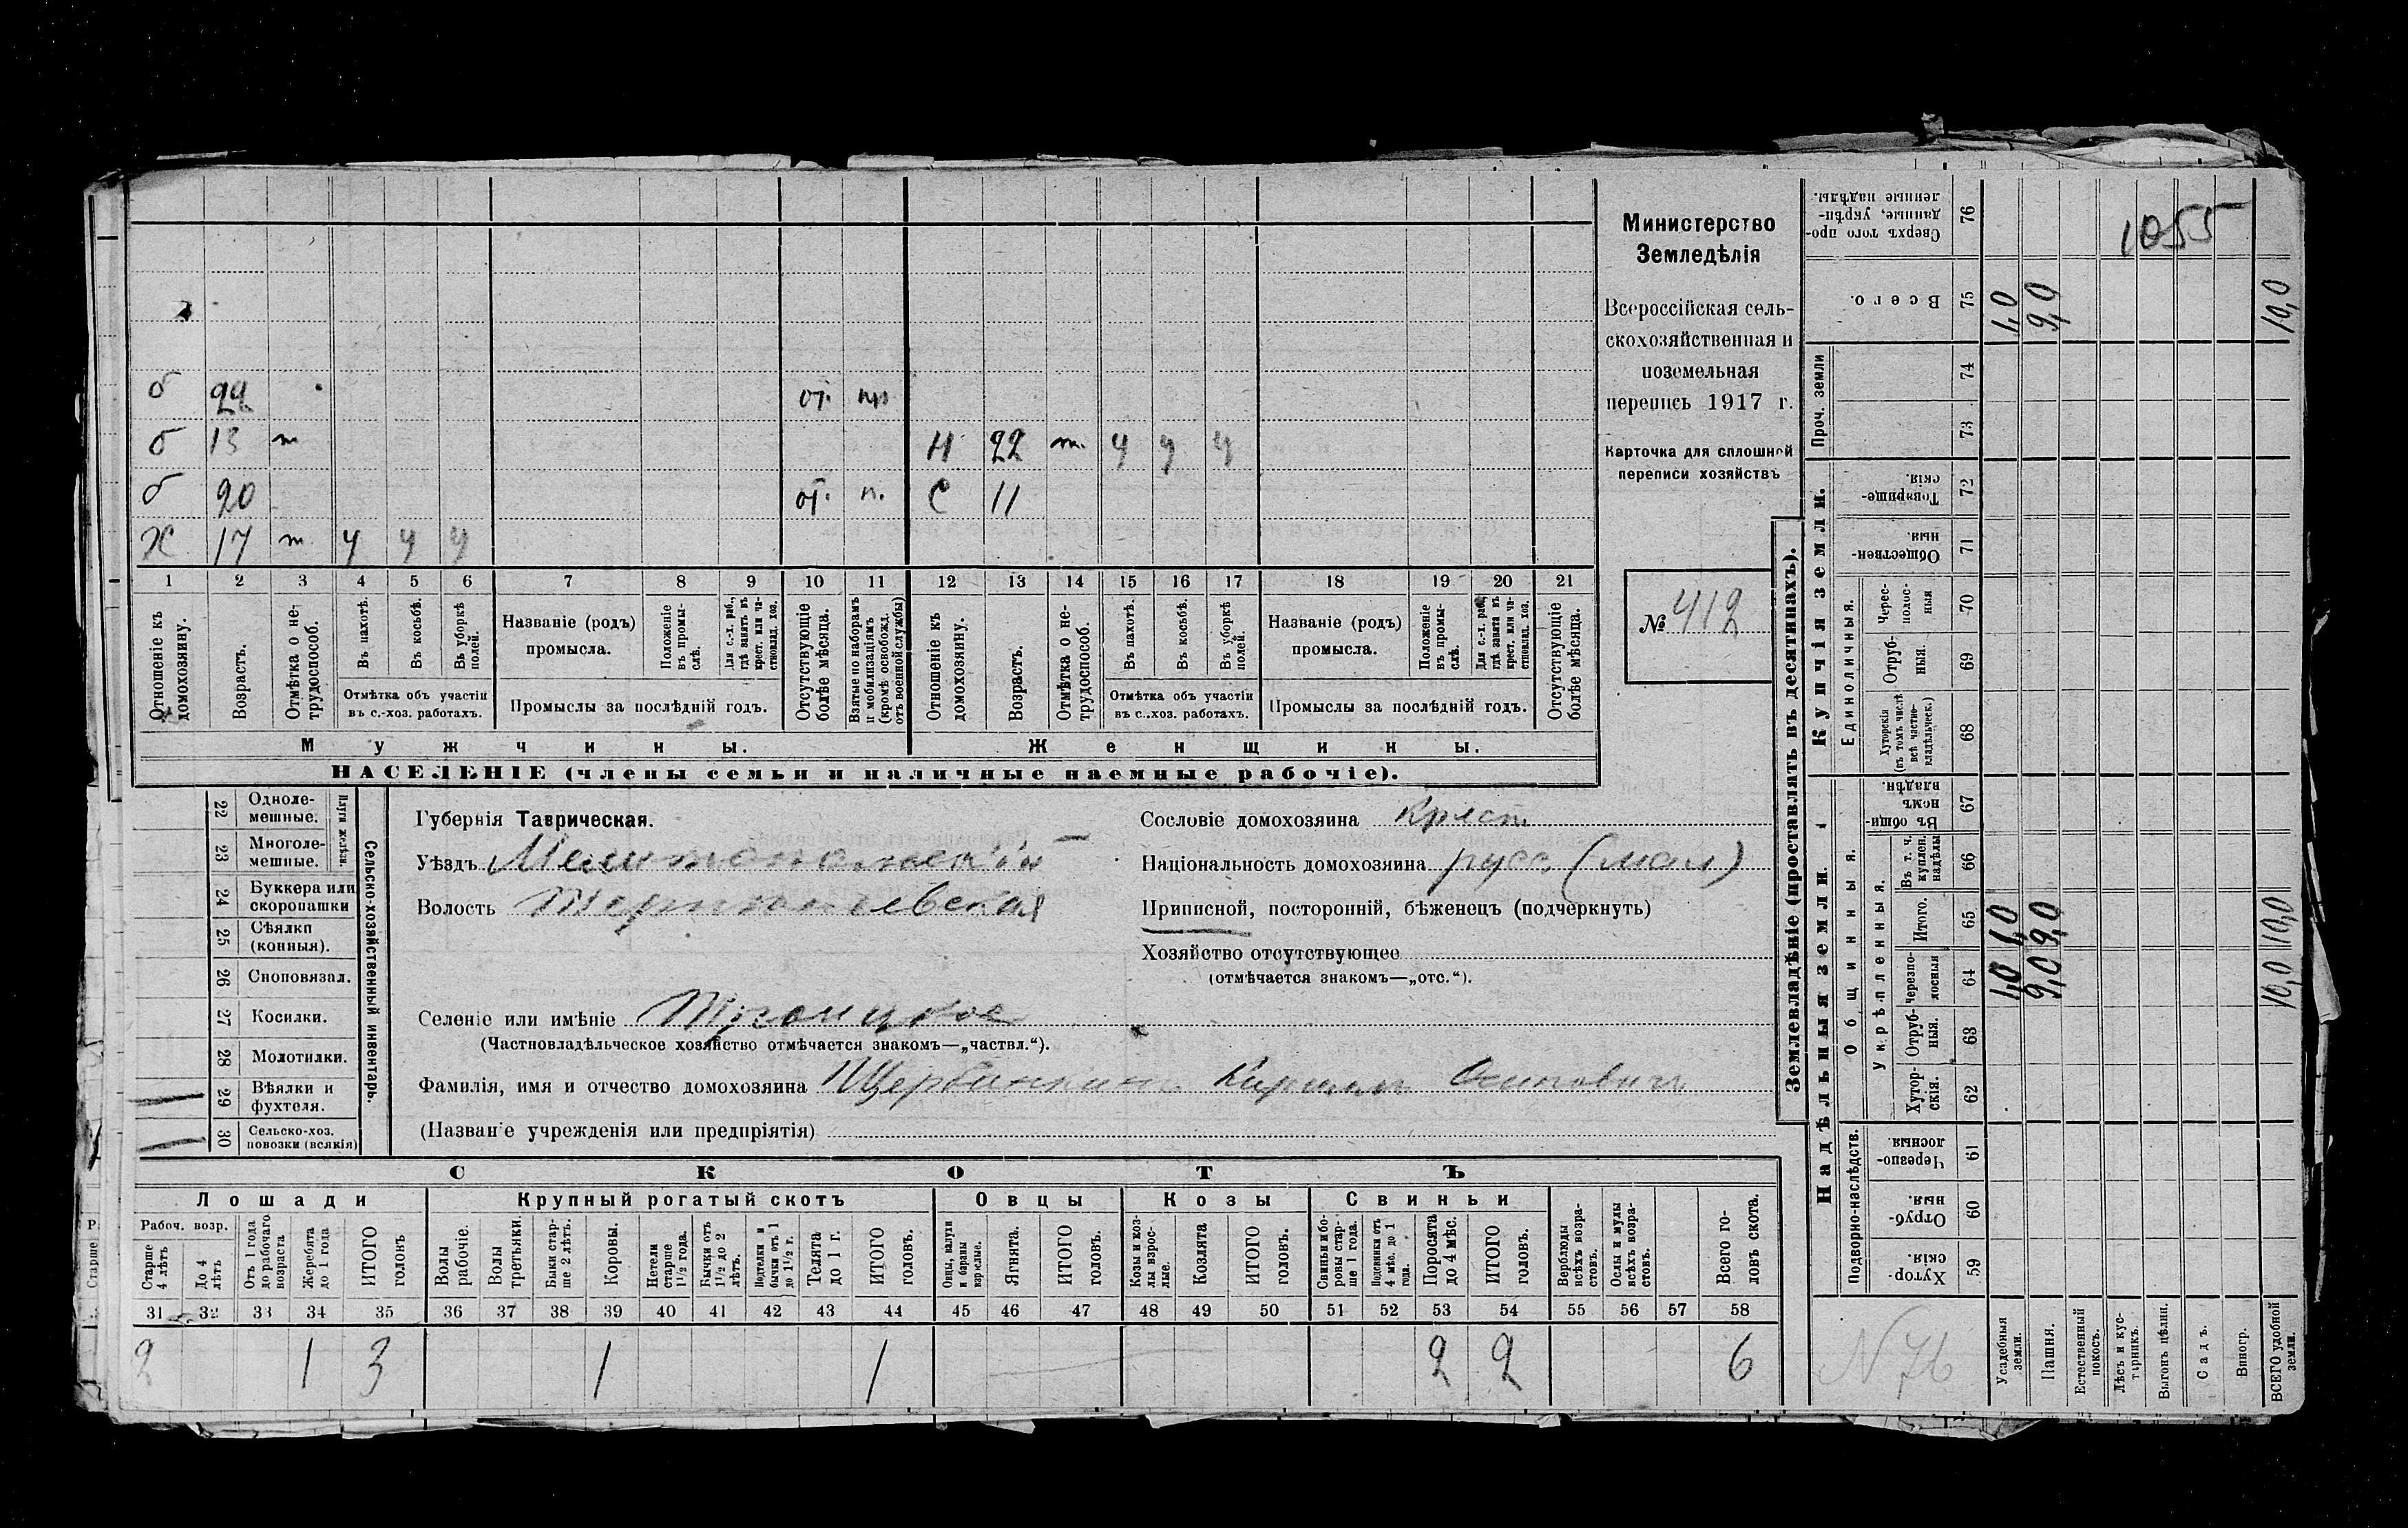 Министерство
Земледѣлія
Всероссійская сель-
скохозяйственная и
поземельная
перепись 1917 г.
Карточка для сплошной
переписи хозяйствъ
№ 412
б 22 от.
б 13 т
Н 22 т. у у у
б 20 от. п. С 11
Х 17 т. у у у
1 2 3 4 5 6 7 8 9 10 11 12 13 14 15 16 17 18 19 20 21
Отношеніе къ домохозяину.
Возрастъ.
Отмѣтка о не-трудоспособ.
Въ пахотѣ.
Въ косьбѣ.
Въ уборкѣ полей.
Отмѣтка объ участіи
въ с.-хоз. работахъ.
Названіе (родъ)
промысла.
Положеніе въ промы-слѣ.
Для с.-х. раб., гдѣ занятъ въ крест. или ча-стновлад. хоз.
Промыслы за послѣдній годъ.
Отсутствующіе болѣе мѣсяца.
Взятые по наборамъ и мобилизаціямъ (кромѣ освобожд. отъ военной службы)
Отношеніе къ домохозяину.
Возрастъ.
Отмѣтка о не-трудоспособ.
Въ пахотѣ.
Въ косьбѣ.
Въ уборкѣ полей.
Отмѣтка объ участіи
въ с.-хоз. работахъ.
Названіе (родъ)
промысла.
Положеніе въ промы-слѣ.
Для с.-х. раб., гдѣ занята въ крест. или ча-стновлад. хоз.
Промыслы за послѣдній годъ.
Отсутствующіе болѣе мѣсяца.
Мужчины.
Женщины.
НАСЕЛЕНІЕ (члены семьи и наличные наемные рабочіе).
Сельско-хозяйственный инвентарь.
Плуги желѣзн.
22 Одноле-мешные.
23 Многоле-мешные.
24 Буккера или скоропашки
25 Сѣялки (конныя).
26 Сноповязал.
27 Косилки.
28 Молотилки.
29 Вѣялки и фухтеля.
30 Сельско-хоз. повозки (всякія)
Губернія Таврическая.
Уѣздъ Мелитопольскій
Волость
Селеніе или имѣніе Троицкое
(Частновладѣльческое хозяйство отмѣчается знакомъ—„частвл.“).
Фамилія, имя и отчество домохозяина Осипович
(Названіе учрежденія или предпріятія)
Сословіе домохозяина крест.
Національность домохозяина русс. (мал)
Приписной, посторонній, бѣженецъ (подчеркнуть)
Хозяйство отсутствующее
(отмѣчается знакомъ—„отс.“).
СКОТЪ
Лошади
Крупный рогатый скотъ
Овцы
Козы
Свиньи
Рабоч. возр.
Старше 4 лѣтъ
До 4 лѣтъ
Отъ 1 года до рабочаго возраста
Жеребята до 1 года
ИТОГО головъ
Волы рабочіе.
Волы третьяки.
Быки стар-ше 2 лѣтъ.
Коровы.
Нетели старше 1½ года.
Бычки отъ 1½ до 2 лѣтъ.
Подтелки и бычки отъ 1 до 1½ г.
Телята до 1 г.
ИТОГО головъ.
Овцы, валухи и бараны взрослые.
Ягнята.
ИТОГО головъ.
Козы и коз-лы взрос-лые.
Козлята
ИТОГО головъ.
Свиньи и бо-ровы стар-ше 1 года.
Подсвинки отъ 4 мѣс. до 1 года.
Поросята до 4 мѣс.
ИТОГО головъ.
Верблюды всѣхъ возра-стовъ.
Ослы и мулы всѣхъ возра-стовъ.
Всего го-ловъ скота.
31 32 33 34 35 36 37 38 39 40 41 42 43 44 45 46 47 48 49 50 51 52 53 54 55 56 57 58
2 1 3 1 1 2 2 6
Землевладѣніе (проставлять въ десятинахъ).
Надѣльныя земли.
Купчія земли.
Проч. земли
Подворно-наслѣдств.
Общинныя.
Укрѣпленныя.
Единоличныя.
Хутор-скія. 59
Отруб-ныя. 60
Черезпо-лосныя 61
Хутор-скія. 62
Отруб-ныя. 63
Черезпо-лосныя 64
Итого. 65
Въ т. ч. куплен. надѣлы 66
Въ общи-номъ владѣн. 67
Хуторскія (въ томъ числѣ всѣ частно-владѣльческ.) 68
Отруб-ныя. 69
Черес-полос-ныя 70
Обществен-ныя. 71
Товарище-скія. 72
73
74
Всего. 75
Сверхъ того про-данные, укрѣп-ленные надѣлы. 76
Усадебныя земли. 1,0 1,0 1,0
Пашня. 9,0 9,0 9,0
Естественный покосъ.
Лѣсъ и кус-тарникъ.
Выгонъ цѣлин.
Садъ.
Виногр.
ВСЕГО удобной земли. 10,0 10,0 10,0
1055
N 76